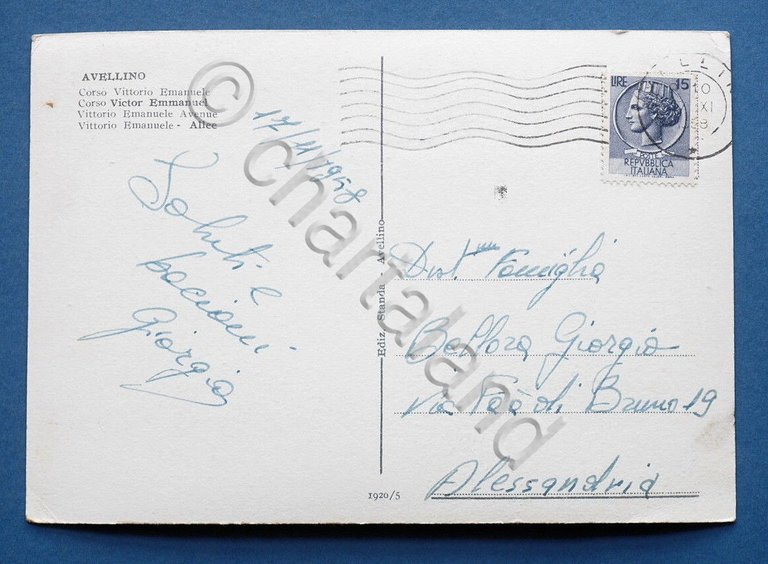 AVELLINO
Corso Vittorio Emanuele
Corso Victor Emmanuel
Vittorio Emanuele Avenue
Vittorio Emanuele - Allee
17/11/1958
Saluti e
bacioni
Giorgio
Ediz. Standa - Avellino
1920/5
LIRE 15
POSTE
REPVBBLICA
ITALIANA
Dist.ma Famiglia
Giorgio
Via Faà di Bruno 19
Alessandria
© chartaland